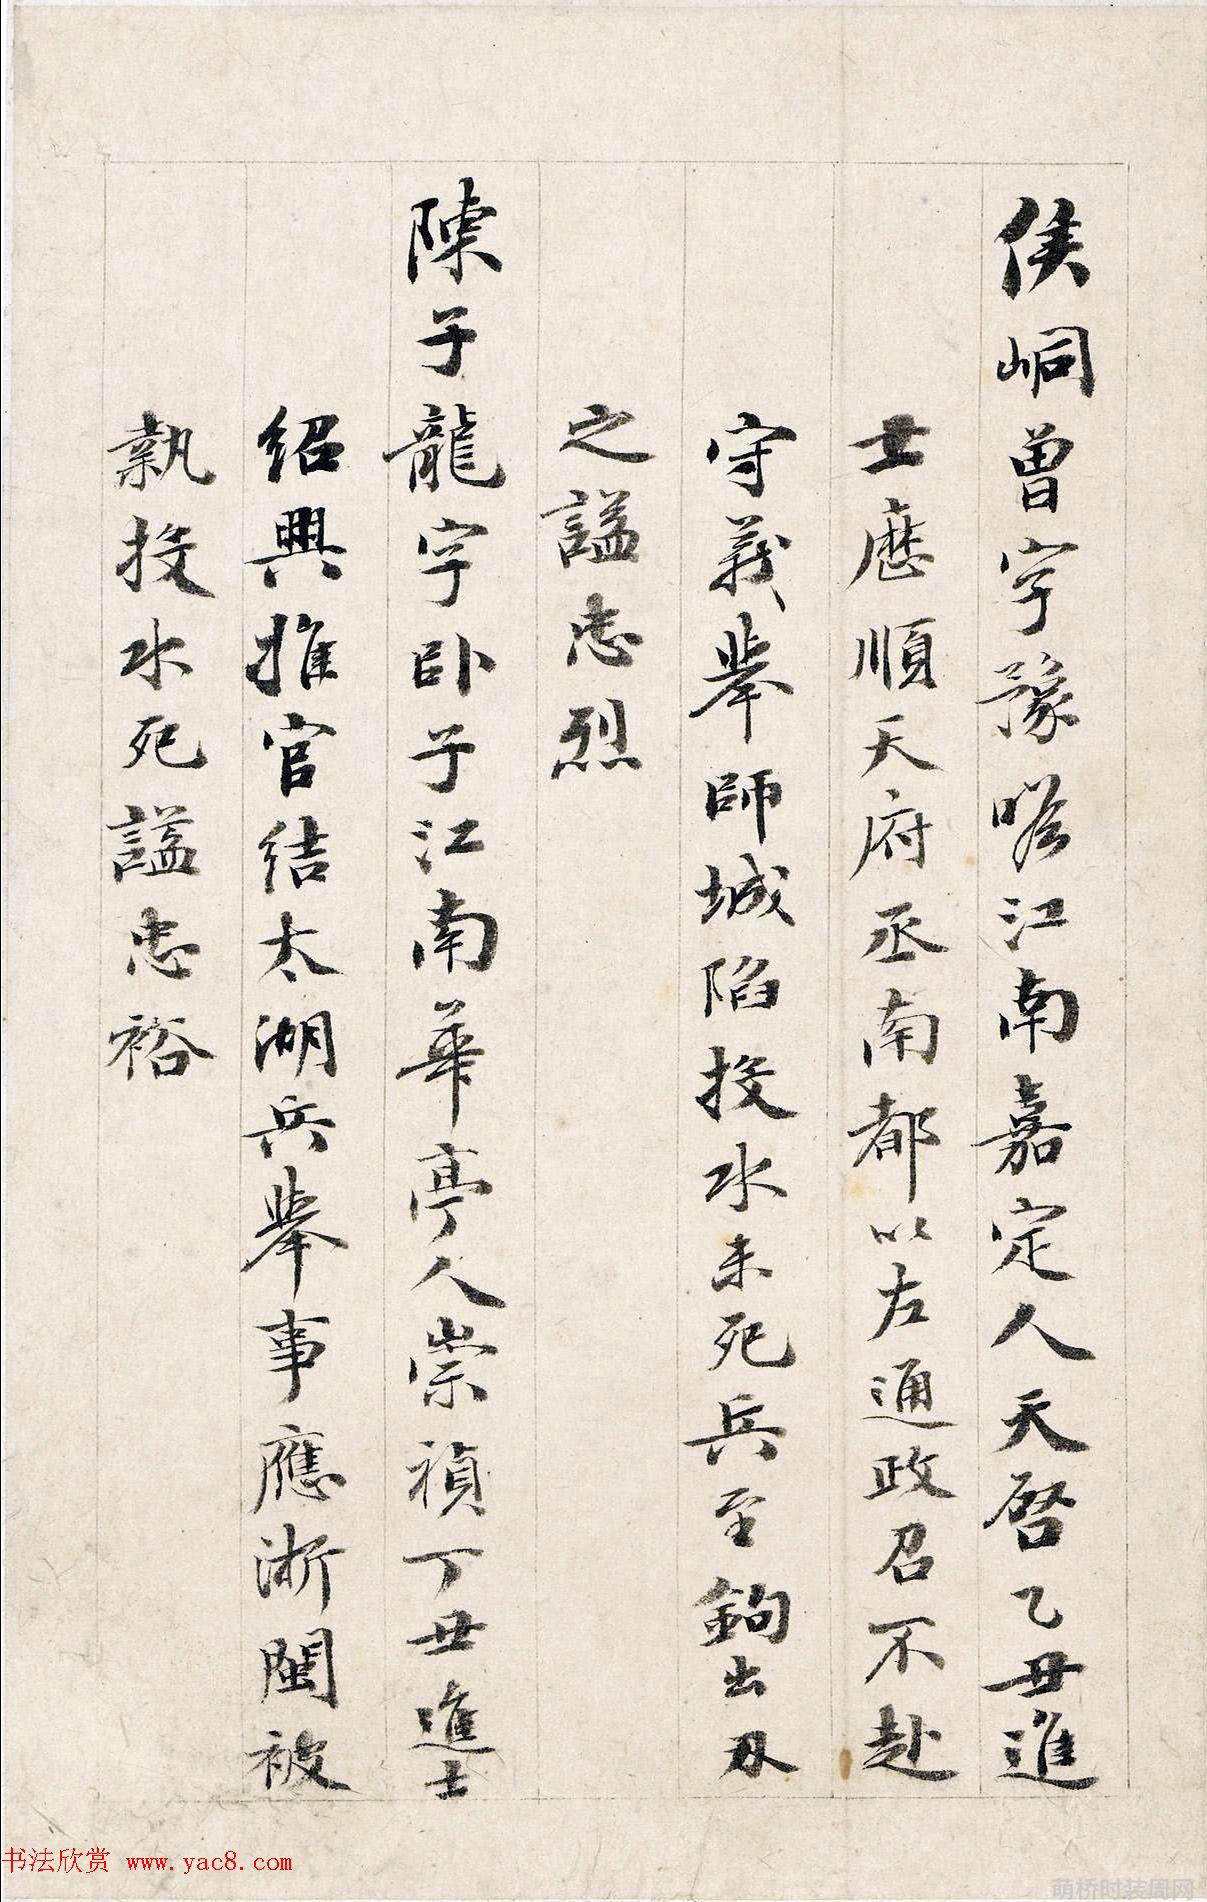 侯峒曾字豫瞻江南嘉定人天啓乙丑進
士歷順天府丞南都以左通政召不赴
守義舉師城陷投水未死兵至鉤出刃
之謚忠烈
陳子龍字臥子江南華亭人崇禎丁丑進士
紹興推官結太湖兵舉事應浙閩被
執投水死謚忠裕
书法欣赏 www.yac8.com
萌桥时装周网